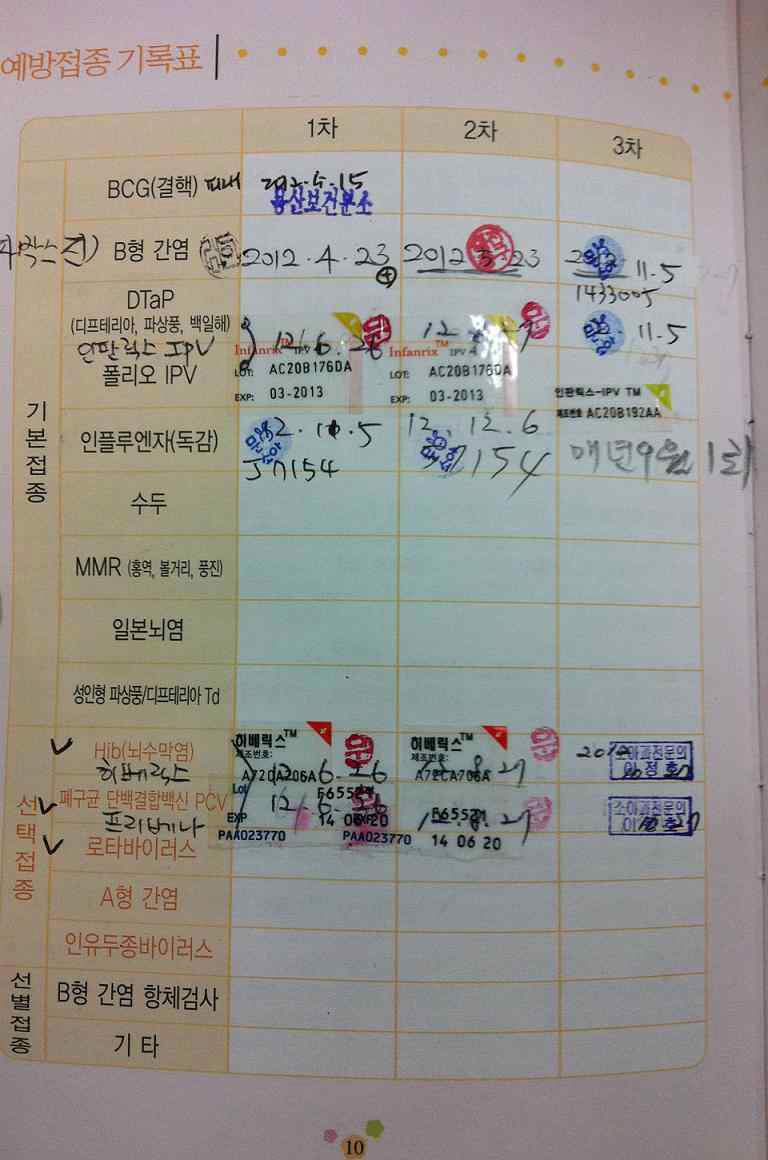 예방접종 기록표
1차 2차 3차
기본접종
BCG(결핵) 피내 2012.5.15
용산보건분소
B형 간염 2012.4.23 2012 5 23 11.5
1433005
DTaP
(디프테리아, 파상풍, 백일해) 11.5
인판릭스 IPV 12.6.26
폴리오 IPV
Infanrix™ IPV
LOT: AC20B176DA
EXP: 03-2013
Infanrix™ IPV
LOT: AC20B176DA
EXP: 03-2013
인판릭스-IPV TM
제조번호 AC20B192AA
인플루엔자(독감) 12. 12. 6 매년 9월 1회
수두
MMR (홍역, 볼거리, 풍진)
일본뇌염
성인형 파상풍/디프테리아 Td
선택접종
Hib(뇌수막염)
히베릭스
히베릭스™
제조번호:
A72CA206A
히베릭스™
제조번호:
A72CA706A
소아과전문의
폐구균 단백결합백신 PCV 12.6.26
프리베나
Lot F65521
EXP 14 06 20
F65521
14 06 20
소아과전문의
로타바이러스 PAA023770 PAA023770
A형 간염
인유두종바이러스
선별접종
B형 간염 항체검사
기타
10